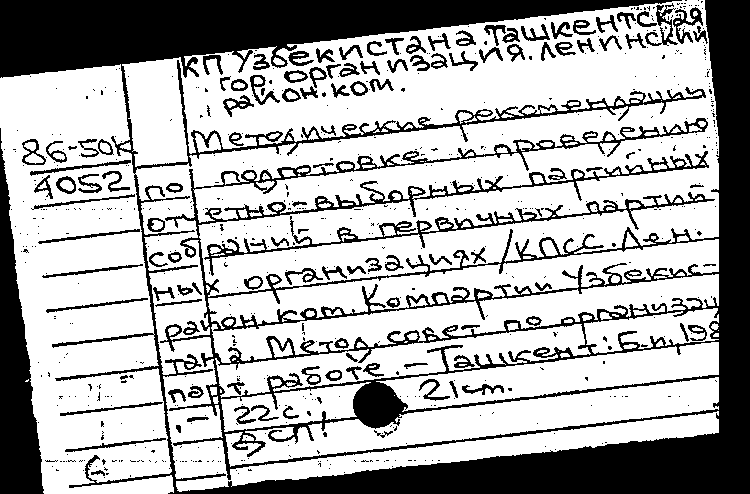 КП Узбекистана. Ташкентская
гор. организация. Ленинский
район. ком.
86-50К
4052
Методические рекомендации
по подготовке и проведению
отчетно-выборных партийных
собраний в первичных партий-
ных организациях / КПСС. Лен.
район. ком. Компартии Узбекис-
тана. Метод. совет по организац
парт. работе. – Ташкент: Б.и., 198
. – 22 с. 21 cm.